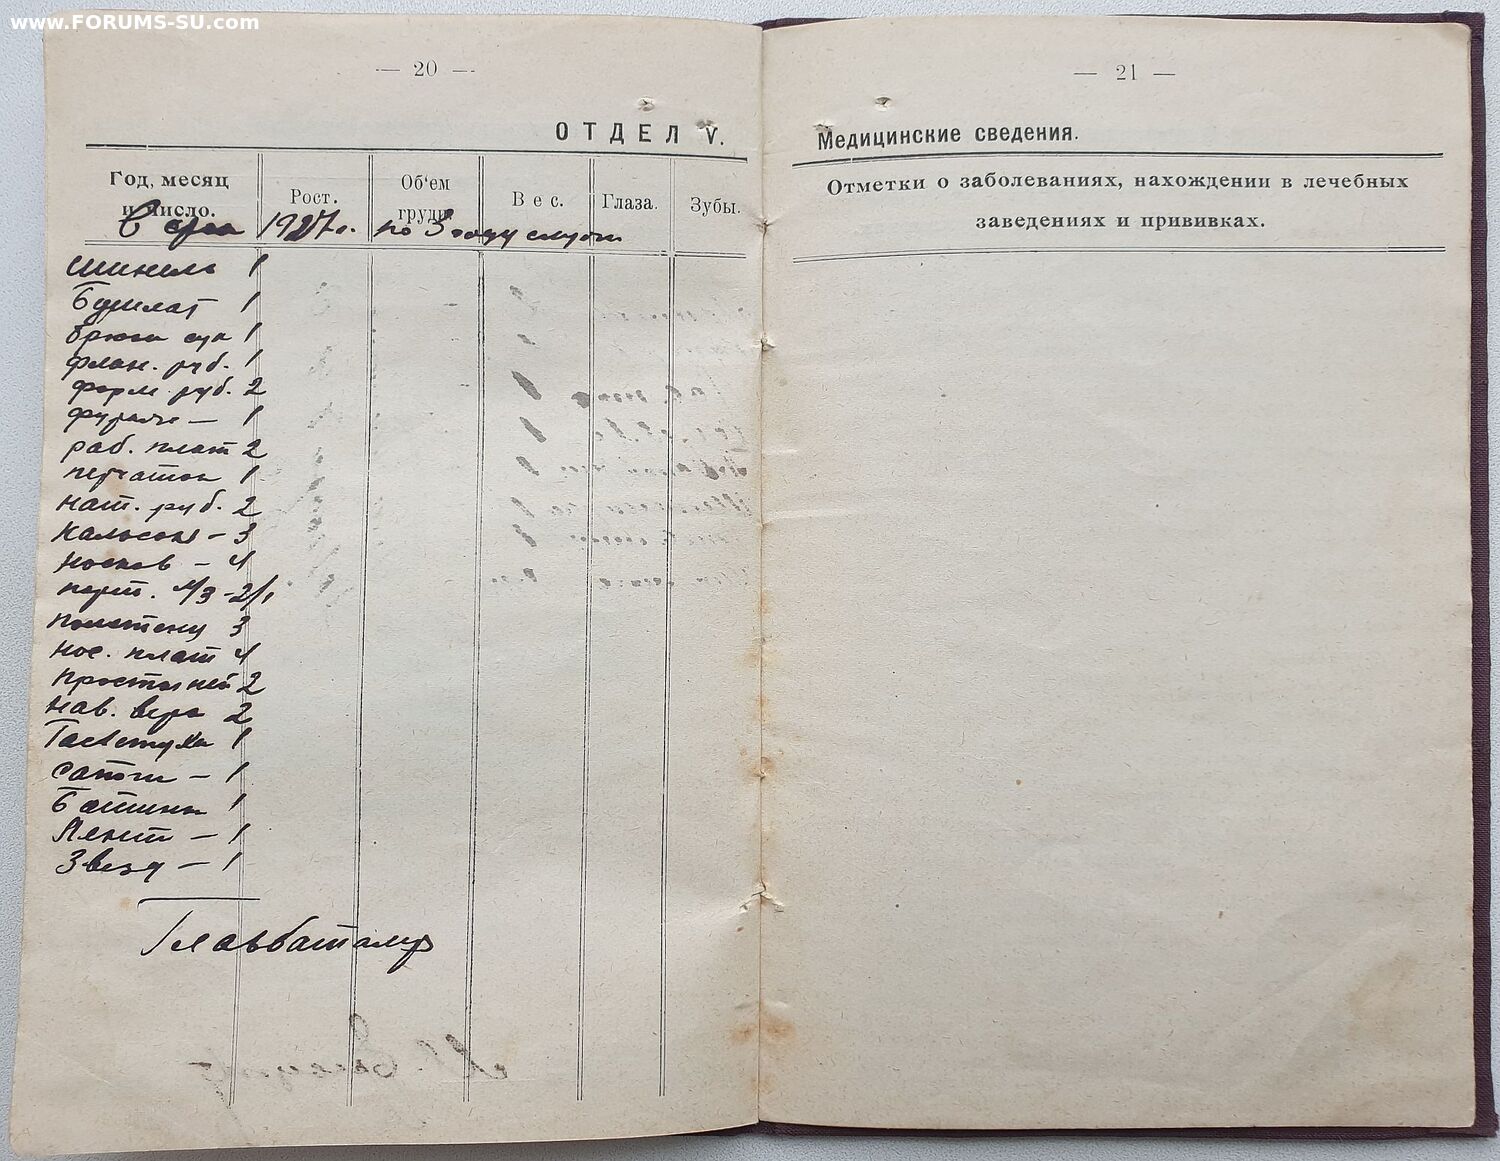 www.FORUMS-SU.com
— 20 —
ОТДЕЛ V.
Год, месяц и число.
Рост.
Об'ем груди
Вес.
Глаза.
Зубы.
1927 г. по 3 году
шинель 1
Бушлат 1
брюки сук 1
флан. руб. 1
форм. руб. 2
фураж — 1
раб. плат 2
перчаток 1
нат. руб. 2
Кальсон – 3
носков – 4
2/1
Полотенц 3
нос. плат 4
простыней 2
нав. верх 2
Галстук 1
сапоги – 1
Ботинк 1
Лент – 1
Звезд – 1
Главбаталер
— 21 —
Медицинские сведения.
Отметки о заболеваниях, нахождении в лечебных
заведениях и прививках.